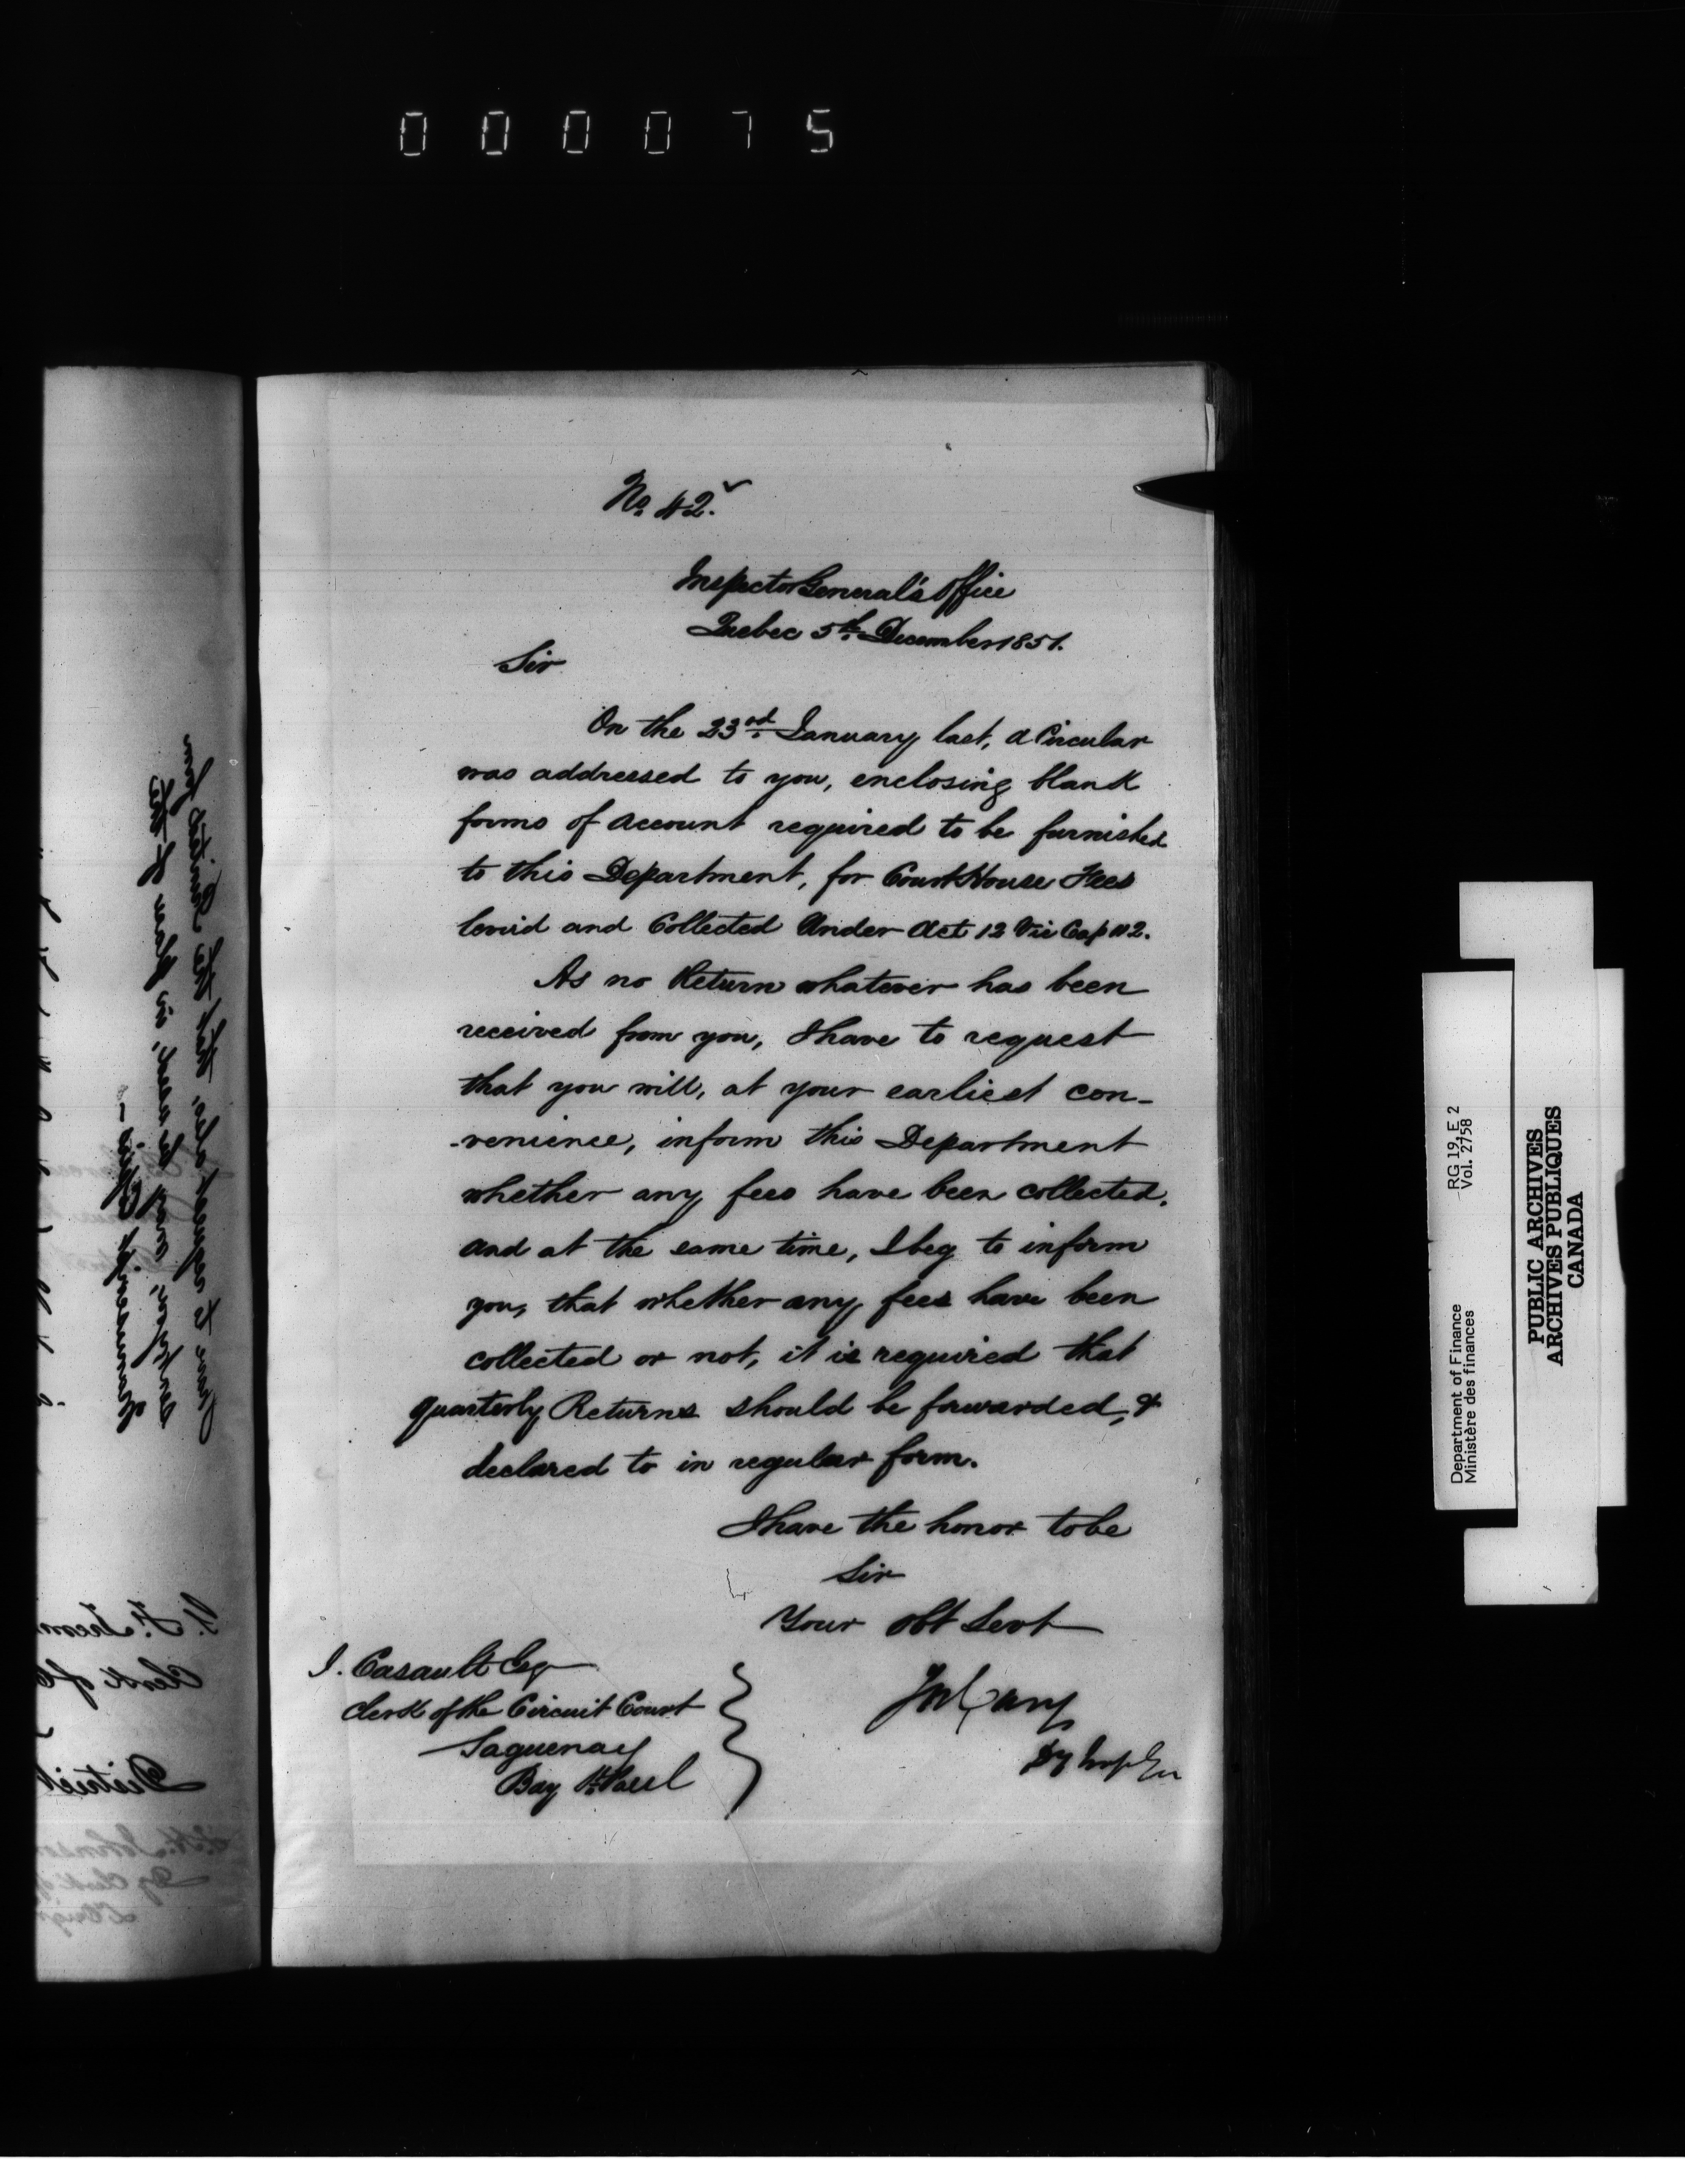 000075
No. 42.
Inspector General's Office
Quebec 5th December 1851.
Sir
On the 23rd January last, a Circular
was addressed to you, enclosing blank
forms of Account required to be furnished
to this Department, for Court House Fees
levied and Collected Under Act 12 Vic Cap 112.
As no Return whatever has been
received from you, I have to request
that you will, at your earliest con-
-venience, inform this Department
whether any fees have been collected,
and at the same time, I beg to inform
you, that whether any fees have been
collected or not, it is required that
quarterly Returns should be forwarded, &
declared to in regular form.
I have the honor to be
Sir
Your Obt Servt
Jos Cary
Dy Insp Gen
J. Casault Esq
Clerk of the Circuit Court
Saguenay
Bay St. Paul
Department of Finance RG 19, E 2
Ministère des finances Vol. 2758
PUBLIC ARCHIVES
ARCHIVES PUBLIQUES
CANADA